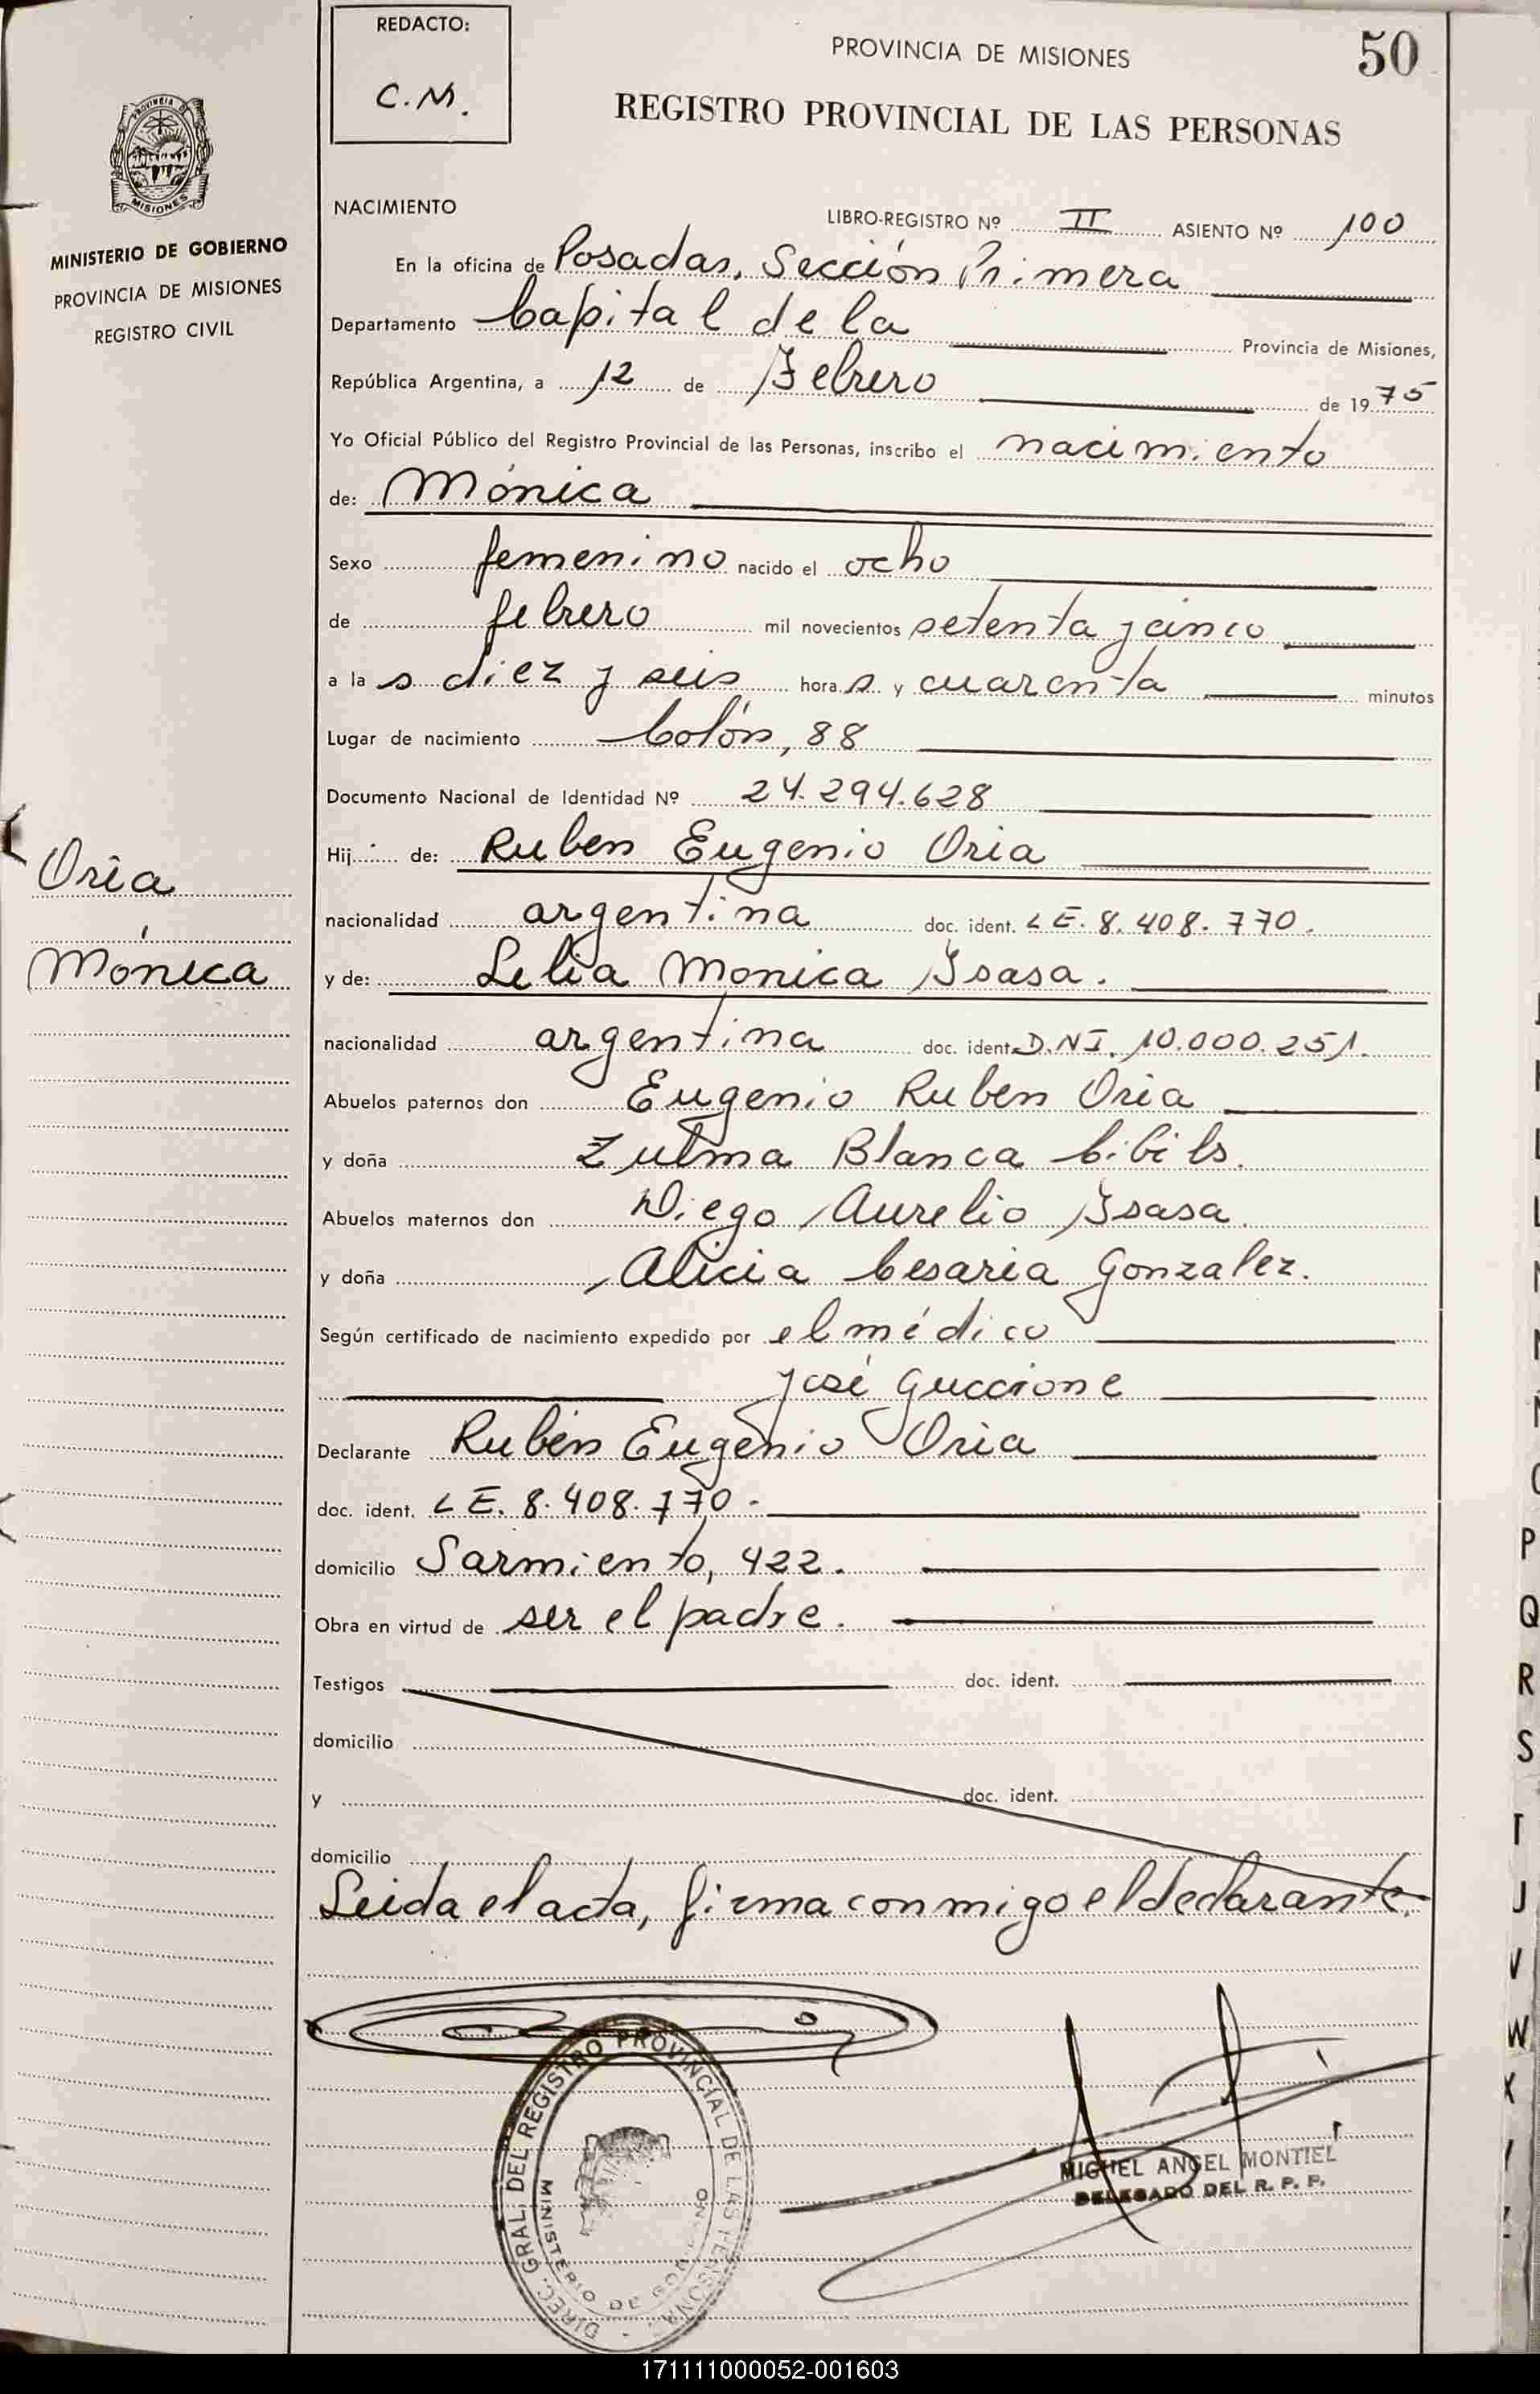 REDACTO:
C.M.
PROVINCIA DE MISIONES
50
REGISTRO PROVINCIAL DE LAS PERSONAS
PROVINCIA DE
MISIONES
MINISTERIO DE GOBIERNO
PROVINCIA DE MISIONES
REGISTRO CIVIL
NACIMIENTO
LIBRO-REGISTRO Nº II ASIENTO Nº 100
En la oficina de Posadas, Sección Primera
Departamento Capital de la Provincia de Misiones,
República Argentina, a 12 de Febrero de 1975
Yo Oficial Público del Registro Provincial de las Personas, inscribo el nacimiento
de: Mónica
Sexo femenino nacido el ocho
de febrero mil novecientos setenta y cinco
a las diez y seis horas y cuarenta minutos
Lugar de nacimiento Colón, 88
Documento Nacional de Identidad Nº 24.294.628
Hij de: Ruben Eugenio Oria
Oria
Mónica
nacionalidad argentina doc. ident. LE. 8.408.770.
y de: Lelia Monica Isasa.
nacionalidad argentina doc. ident. D.N.I. 10.000.251.
Abuelos paternos don Eugenio Ruben Oria
y doña Zulma Blanca Cibils.
Abuelos maternos don Diego Aurelio Isasa.
y doña Alicia Cesaria Gonzalez.
Según certificado de nacimiento expedido por el médico
José Guccione
Declarante Rubén Eugenio Oria
doc. ident. LE. 8.408.770.
domicilio Sarmiento, 422.
Obra en virtud de ser el padre.
Testigos doc. ident.
domicilio
y doc. ident.
domicilio
Leida el acta, firma conmigo el declarante.
DIREC. GRAL. DEL REGISTRO PROVINCIAL DE LAS PERSONAS
MINISTERIO DE GOBIERNO
MIGUEL ANGEL MONTIEL
DELEGADO DEL R. P. P.
P
Q
R
S
T
V
W
X
171111000052-001603